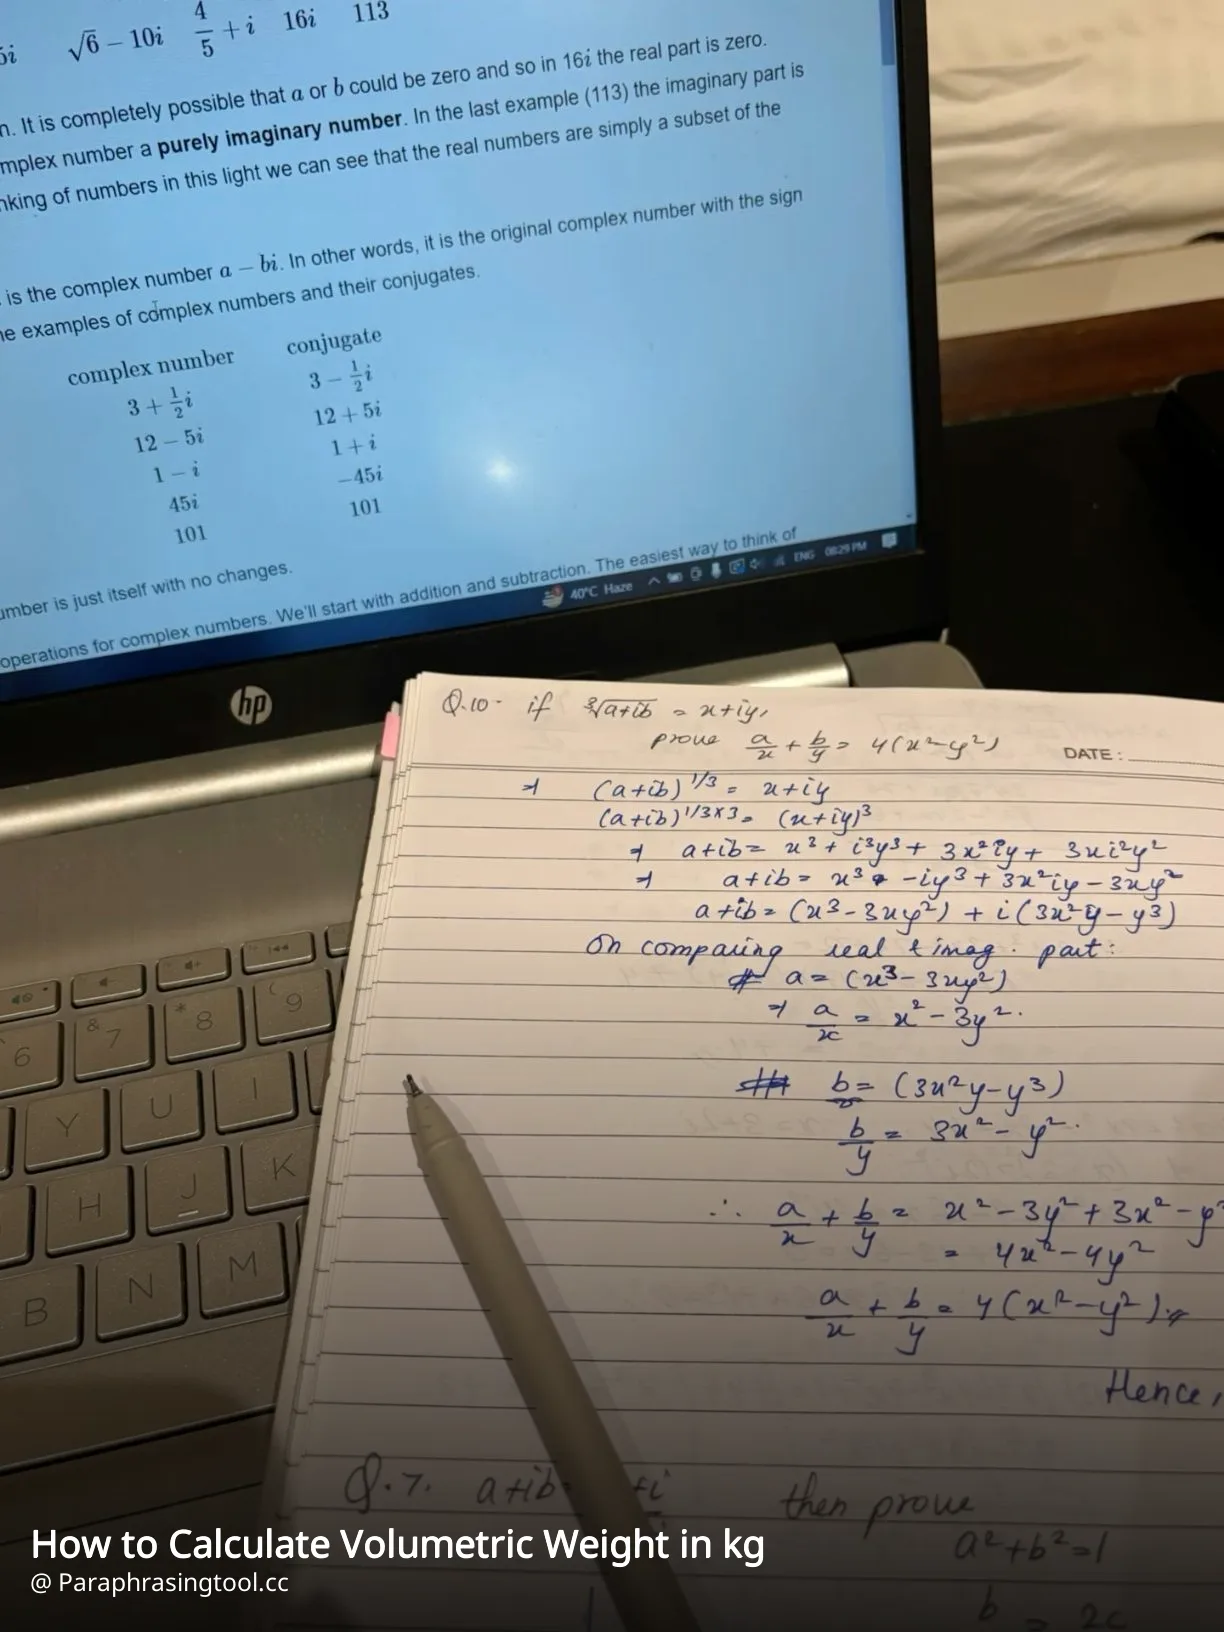 5i √6 − 10i 4/5 + i 16i 113
n. It is completely possible that a or b could be zero and so in 16i the real part is zero.
mplex number a purely imaginary number. In the last example (113) the imaginary part is
nking of numbers in this light we can see that the real numbers are simply a subset of the
is the complex number a − bi. In other words, it is the original complex number with the sign
ne examples of complex numbers and their conjugates.
complex number conjugate
3 + 1/2 i 3 − 1/2 i
12 − 5i 12 + 5i
1 − i 1 + i
45i −45i
101 101
umber is just itself with no changes.
operations for complex numbers. We'll start with addition and subtraction. The easiest way to think of
40°C Haze ENG 08:29 PM
hp
Q.10- if ∛a+ib = x+iy,
prove a/x + b/y = 4(x²-y²)
DATE:
⇒ (a+ib)^1/3 = x+iy
(a+ib)^1/3×3 = (x+iy)³
⇒ a+ib = x³ + i³y³ + 3x²iy + 3xi²y²
⇒ a+ib = x³ -iy³ + 3x²iy - 3xy²
a+ib = (x³-3xy²) + i(3x²y - y³)
On comparing real & imag. part:
a = (x³-3xy²)
⇒ a/x = x² - 3y².
b = (3x²y-y³)
b/y = 3x² - y².
∴ a/x + b/y = x² - 3y² + 3x² - y²
= 4x² - 4y²
a/x + b/y = 4(x²-y²).
Hence,
Q.7. a+ib +i then prove
a²+b²=1
b = 2c
& 7 * 8 ( 9
6
Y U I
H J K
B N M
How to Calculate Volumetric Weight in kg
@ Paraphrasingtool.cc